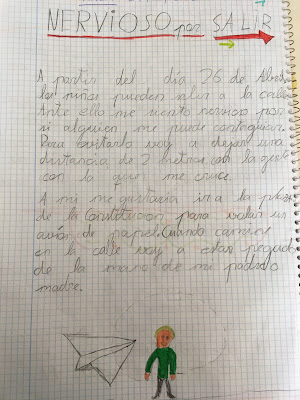 NERVIOSO por SALIR
A partir del día 26 de Abril
los niños pueden salir a la calle.
Ante ello me siento nervioso por
si alguien me puede contagiar.
Para evitarlo voy a dejar una
distancia de 2 metros con la gente
con la que me cruce.
A mi me gustaría ir a la plaza
de la Constitución para volar un
avión de papel. Cuando camine
en la calle voy a estar pegado
de la mano de mi padre o
madre.